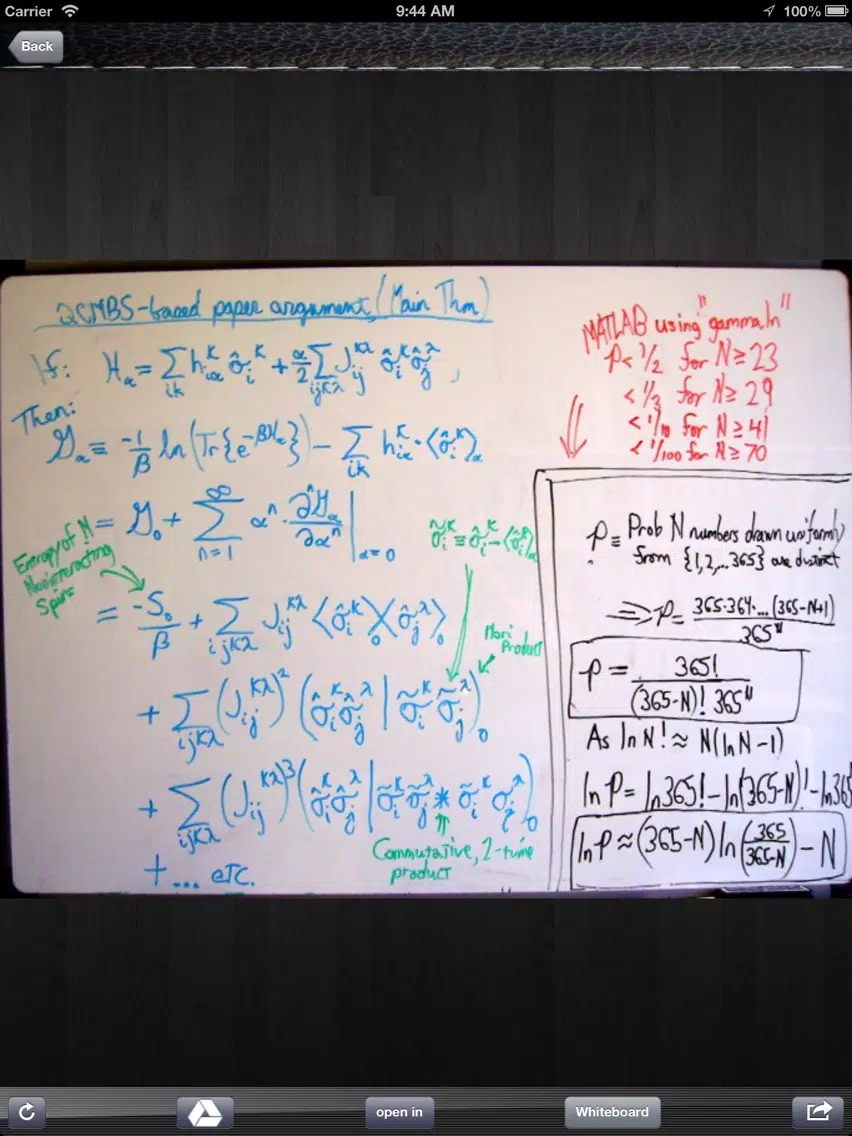 Carrier 9:44 AM 100%
Back
2CMBS-based paper argument (Main Thm)
If: H_α = Σ_{ik} h_{iα}^κ σ̂_i^κ + α/2 Σ_{ijκλ} J_{ij}^{κλ} σ̂_i^κ σ̂_j^λ ,
Then:
G_α ≡ -1/β ln(Tr{e^{-βH_α}}) - Σ_{ik} h_{iα}^κ · ⟨σ̂_i^κ⟩_α
= G_0 + Σ_{n=1}^∞ α^n · ∂^n G_α/∂α^n |_{α=0}
σ̃_i^κ ≡ σ̂_i^κ - ⟨σ̂_i^κ⟩_α
Entropy of N
Noninteracting
Spins
= -S_0/β + Σ_{ijκλ} J_{ij}^{κλ} ⟨σ̂_i^κ⟩_0 ⟨σ̂_j^λ⟩_0
Mori
Product
+ Σ_{ijκλ} (J_{ij}^{κλ})^2 (σ̂_i^κ σ̂_j^λ | σ̃_i^κ σ̃_j^λ)_0
+ Σ_{ijκλ} (J_{ij}^{κλ})^3 (σ̂_i^κ σ̂_j^λ | σ̃_i^κ σ̃_j^λ * σ̃_i^κ σ_j^λ)_0
Commutative, 2-time
product
+ ... etc.
MATLAB using "gammaln"
P < 1/2 for N ≥ 23
< 1/3 for N ≥ 29
< 1/10 for N ≥ 41
< 1/100 for N ≥ 70
P ≡ Prob N numbers drawn uniformly
from {1,2,...365} are distinct
⇒ P = 365·364·...(365-N+1)/365^N
P = 365!/(365-N)! 365^N
As ln N! ≈ N(ln N - 1)
ln P = ln 365! - ln(365-N)! - ln 365
ln P ≈ (365-N) ln(365/365-N) - N
open in
Whiteboard